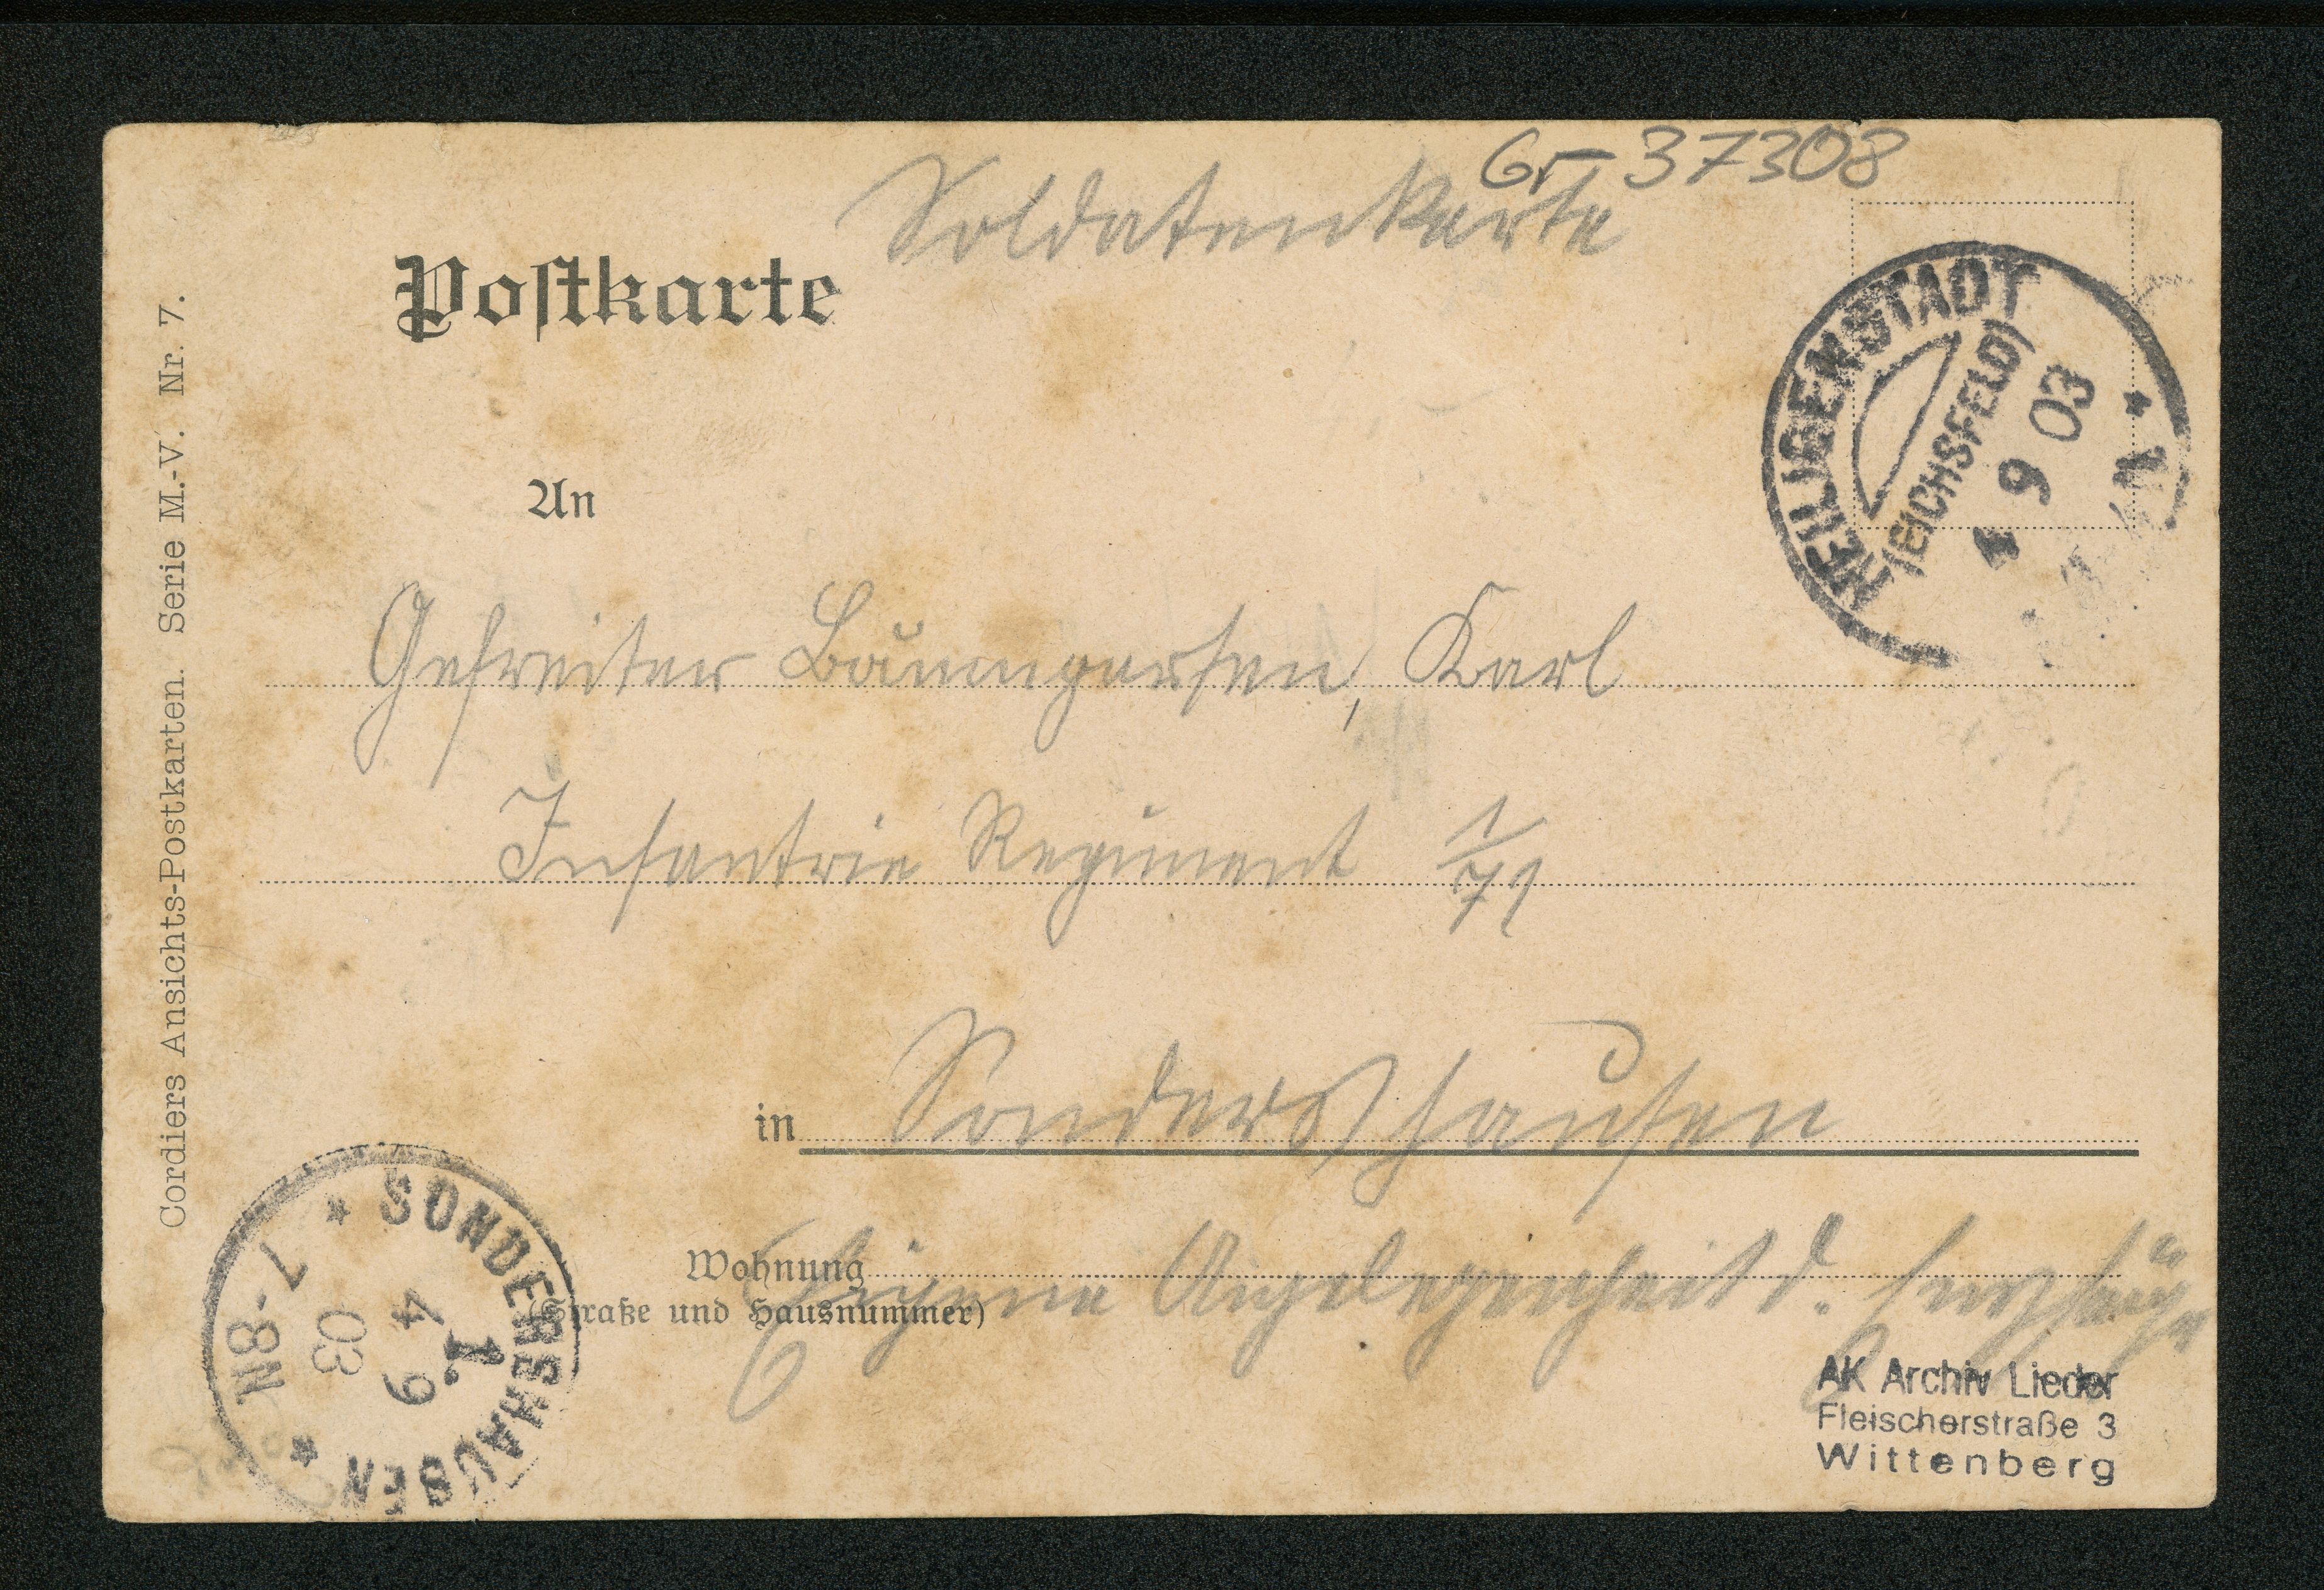 Gr-37308
Soldatenkarte
Postkarte
HEILIGENSTADT
(EICHSFELD)
4 9 03
An
Gefreiter Baumgarten, Karl
Infantrie Regiment 1/71
in Sondershausen
Wohnung
(Straße und Hausnummer)
Eigene Angelegenheit d. Empfäng.
SONDERSHAUSEN
1.
4 9
03
7-8N
Cordiers Ansichts-Postkarten. Serie M.-V. Nr. 7.
AK Archiv Lieder
Fleischerstraße 3
Wittenberg